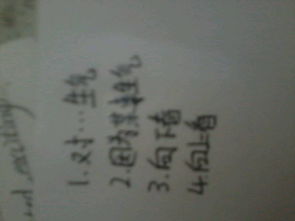 exciting
1. 对…生气
2. 因为某事生气
3. 向下看
4. 向上看